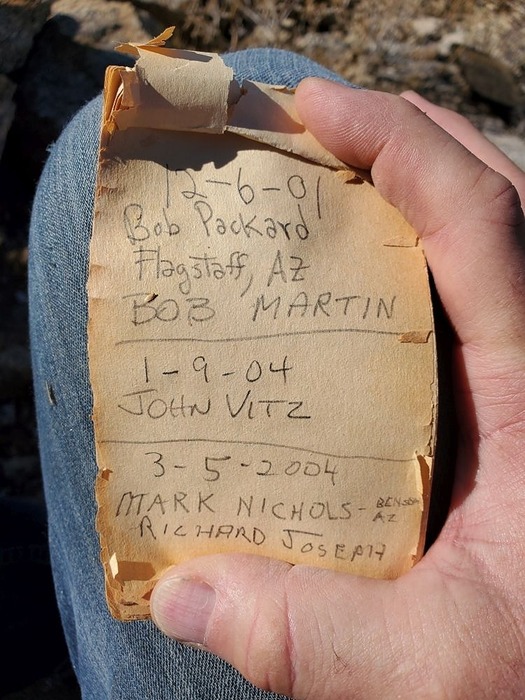 12-6-01
Bob Packard
Flagstaff, AZ
BOB MARTIN
1-9-04
JOHN VITZ
3-5-2004
MARK NICHOLS- BENSON AZ
RICHARD JOSEPH